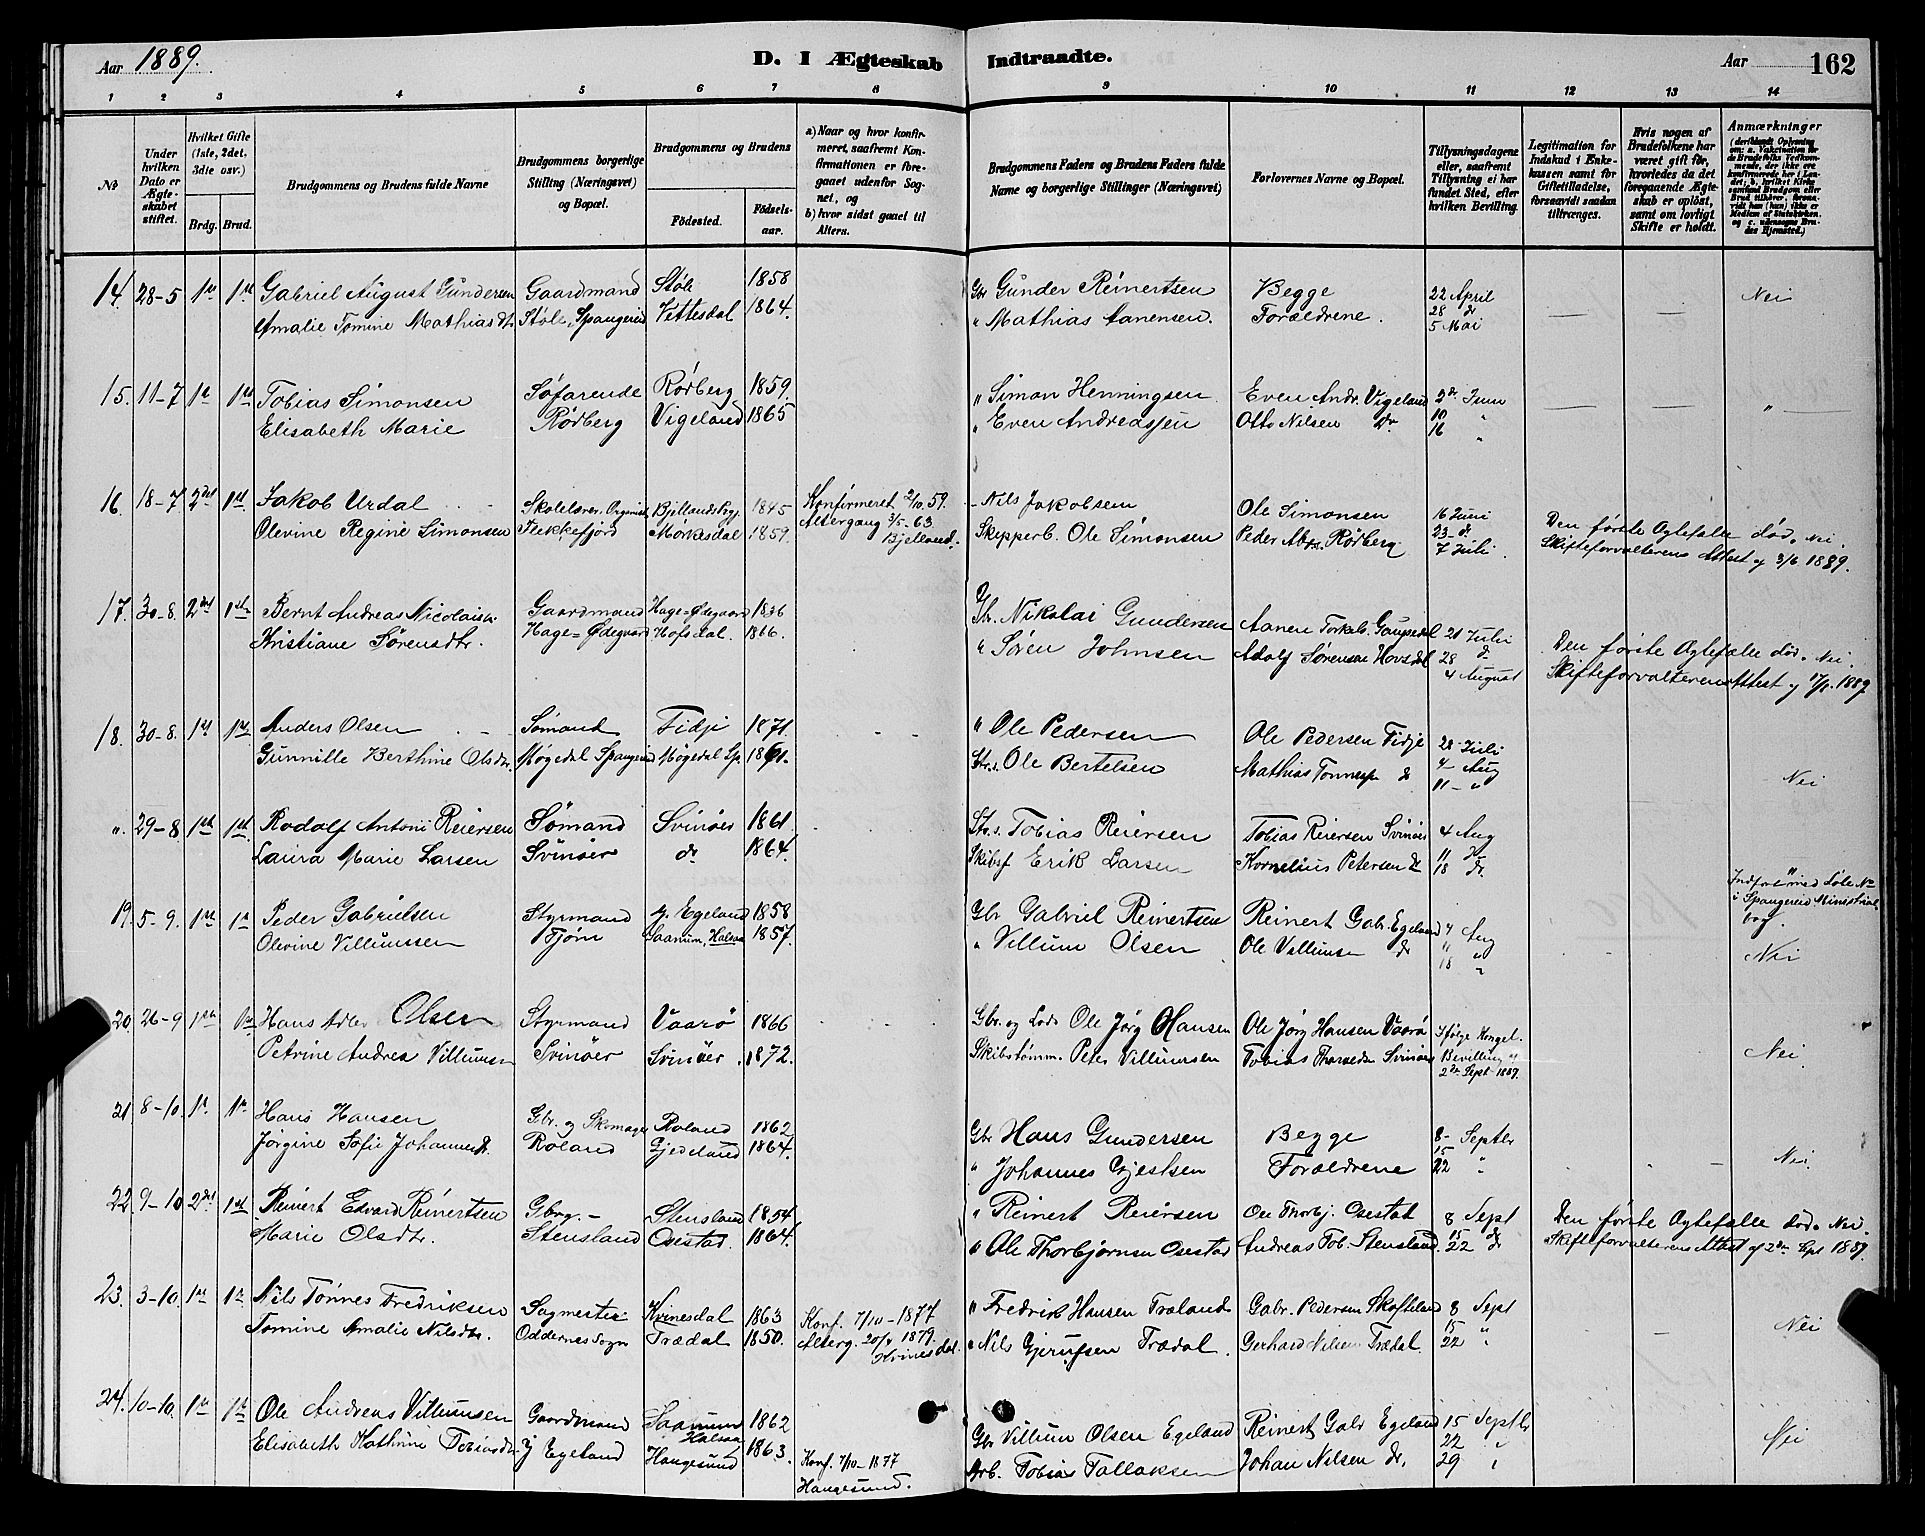 Aar 1889.
D. I Ægteskab Indtraadte.
Aar 162
1 2 3 4 5 6 7 8 9 10 11 12 13 14
No
Under hvilken Dato er Ægteskabet stiftet.
Hvilket Gifte (1ste, 2det, 3die osv.)
Brdg. Brud.
Brudgommens og Brudens fulde Navne
Brudgommens borgerlige Stilling (Næringsvei) og Bopæl.
Brudgommens og Brudens
Fødested.
Fødselsaar.
a) Naar og hvor konfirmeret, saafremt Konfirmationen er foregaaet udenfor Sognet, og
b) hvor sidst gaaet til Alters.
Brudgommens Faders og Brudens Faders fulde Navne og borgerlige Stillinger (Næringsvei)
Forlovernes Navne og Bopæl.
Tillysningsdagene eller, saafremt Tillysning ei har fundet Sted, efter hvilken Bevilling.
Legitimation for Indskud i Enkekassen samt for Giftetilladelse, forsaavidt saadan tiltrænges.
Hvis nogen af Brudefolkene har været gift før, hvorledes da det foregaaende Ægteskab er opløst, samt om lovligt Skifte er holdt.
Anmærkninger
14. 28-5 1ste 1ste Gabriel August Gundersen Gaardmand Støle 1858 Gbr Gunder Reinertsen Begge 22 April Nei
Amalie Tomine Mathiasdtr. Støle, Spangereid Vittesdal 1864. " Mathias Aanensen. Forældrene. 28 do
5 Mai
15. 11-7 1ste 1ste Tobias Simonsen Søfarende Rødberg 1859. " Simon Henningsen Even Andr. Vigeland 2den Juni "
Elisabeth Marie Rødberg Vigeland 1865 " Even Andreassen Otto Nilsen do 10 "
16 "
16. 18-7 2det 1ste Jakob Urdal Skolelærer. Organist Bjellands Sogn 1845 Konfirmeret 2/10 59. Nils Jakobsen Ole Simonsen 16 Juni
Olevine Regine Simonsen Flekkefjord Mørkesdal 1859. Altergang 3/5-63. Bjelland. Skipperb. Ole Simonsen Peder Abr. Rødberg. 23 do Den første Ægtefælle død. Nei.
7 Juli. Skifteforvalterens Attest af 3/6 1889.
17. 30-8. 2det 1ste Bernt Andreas Nicolaisen Gaardmand Hage=Ødegaard 1836 Gbr. Nikolai Gundersen Aanen Torkels. Gaupedal 21 Juli
Kristiane Sørensdtr. Hage=Ødegaard Hofsdal. 1866. " Søren Johnsen Adolf Sørensen Hovsdal 28 do Den første Ægtefælle død. Nei.
4 August Skifteforvalterens Attest af 1889
18. 30-8. 1ste 1ste Anders Olsen Sømand Fidje 1871. " Ole Pedersen Ole Pedersen Fidje 28 Juli
Gunnille Berthine Olsdtr. Møgedal Spangereid Møgedal Sp. Strs. Ole Bertelsen Mathias Tønnes do 4 Aug Nei
11 "
". 29-8 1ste 1ste Rodolf Antoni Reiersen Sømand Svinøer 1861. Strs. Tobias Reiersen Tobias Reiersen Svinøer 4 Aug
Laura Marie Larsen Svinøer do 1864. Skibsf Erik Larsen Kornelius Petersen do 11 do
18 do Indført med Løbe No i Spangereid Ministerialbog.
19. 5-9. 1ste 1ste Peder Gabrielsen Styrmand Y. Egeland 1858 Gbr Gabriel Reinertsen Reinert Gabr. Egeland 4 Aug
Olevine Villumsen Tjøm Saanum, Halsaa 1857. " Villum Olsen Ole Villumsen do 11 " Nei
18 "
20. 26-9 1ste 1ste Hans Adler Olsen Styrmand Vaarø 1866 Gbr. og Lods Ole Jørg Hansen Ole Jørg Hansen Vaarø Ifølge Kongel.
Petrine Andrea Villumsen Svinøer Svinøer 1872. Skibstømm. Peter Villumsen Tobias Svinøer Bevilling af Nei
2den Sept 1889.
21. 8-10. 1ste 1ste Hans Hansen Gbr. og Skomager Roland 1862 Gbr Hans Gundersen Begge 8 Septbr
Jørgine Sofie Johannesdtr. Roland Gjedeland 1864. " Johannes Gjertsen Forældrene 15 Nei
22 "
22. 9-10 2det 1ste Reinert Edvard Reinertsen Gbrg. Stensland 1854 " Reinert Reiersen Ole Thorbj. Osestad 8 Sept Den første Ægtefælle død. Nei
Marie Olsdtr. Stensland Osestad. 1864. " Ole Thorbjørnsen Osestad Andreas Tob. Stensland 15 do Skifteforvalterens Attest af 2den Spt 1889.
22 do
23. 3-10. 1ste 1ste Nils Tønnes Fredriksen Sagmester Kvinesdal 1863 Konf. 7/10-1877 " Fredrik Hansen Træland Gabr. Pedersen Skofteland 8 Sept
Tomine Amalie Nilsdtr. Oddernes Sogn Trædal 1850. Alterg. 20/4 1879. Kvinesdal " Nils Gjerufsen Trædal. Gerhard Nilsen Trædal. 15 " Nei
22 "
24. 10-10. 1ste 1ste Ole Andreas Villumsen Gaardmand Saanum Halsaa 1862 Gbr Villum Olsen Egeland Reinert Gabr Egeland 15 Septbr
Elisabeth Kathrine Tobiasdtr. Y Egeland Haugesund 1863. Konf. 7/10-1877 Haugesund. Arb. Tobias Tallaksen Johan Nilsen do. 22 " Nei
29 "